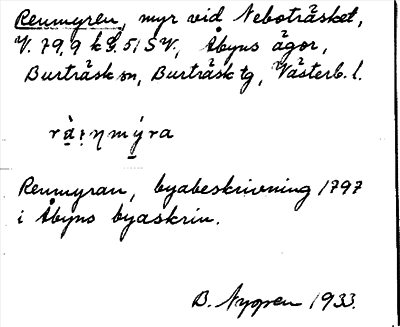 Renmyren, myr vid Neboträsket,
V. 79,9 k 8,5; S V., Åbyns ägor,
Burträsk sn, Burträsk tg, Västerb. l.
Renmyran, byabeskrivning 1797
i Åbyns byaskrin.
B. Nygren 1933.